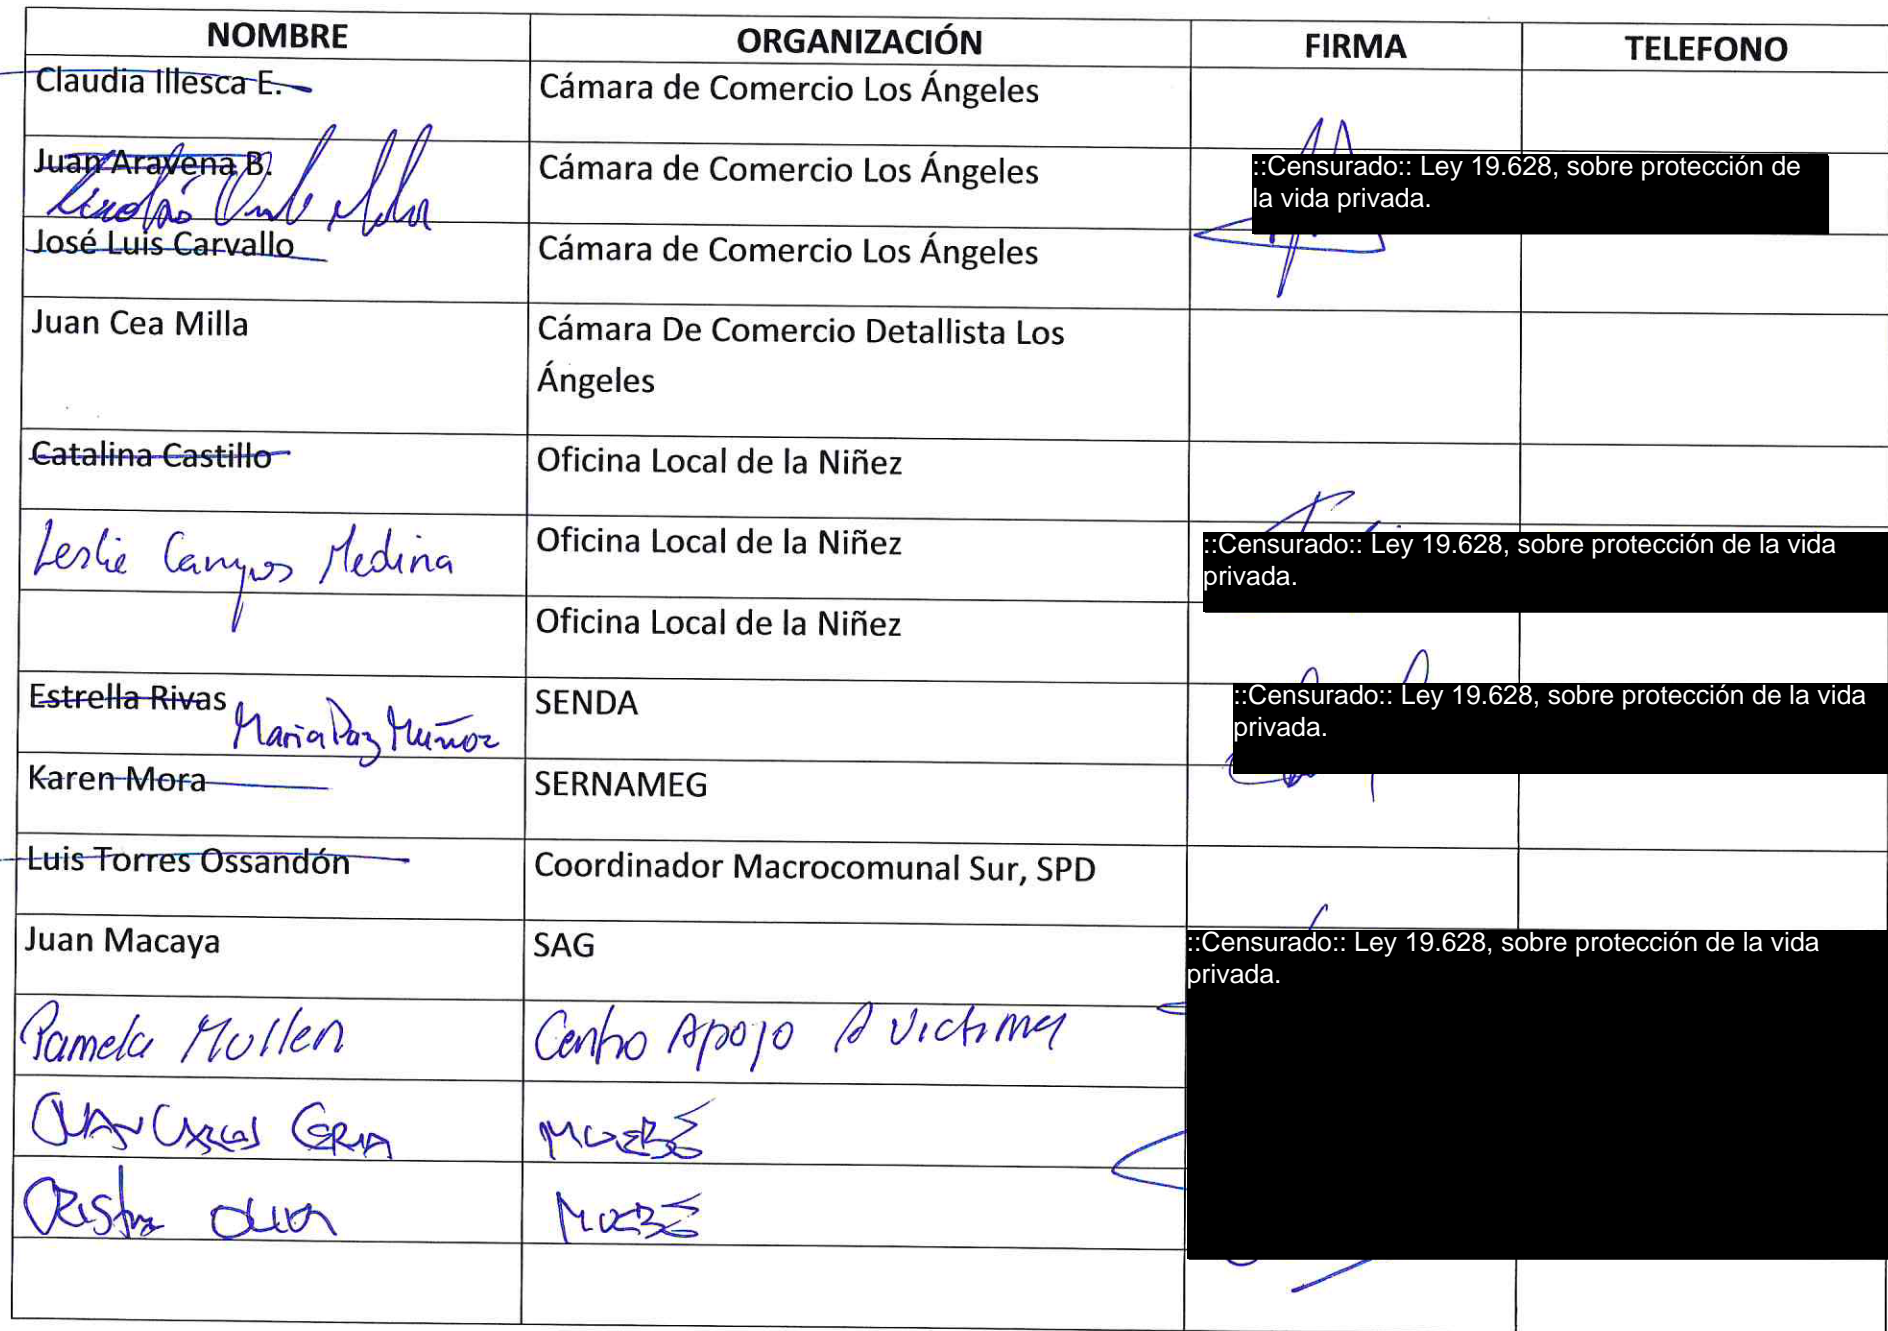 NOMBRE ORGANIZACIÓN FIRMA TELEFONO
Claudia Illesca E. Cámara de Comercio Los Ángeles
Juan Aravena B. Cámara de Comercio Los Ángeles ::Censurado:: Ley 19.628, sobre protección de
la vida privada.
José Luis Carvallo Cámara de Comercio Los Ángeles
Juan Cea Milla Cámara De Comercio Detallista Los
Ángeles
Catalina Castillo Oficina Local de la Niñez
Leslie Campos Medina Oficina Local de la Niñez ::Censurado:: Ley 19.628, sobre protección de la vida
privada.
Oficina Local de la Niñez
Estrella Rivas SENDA ::Censurado:: Ley 19.628, sobre protección de la vida
Maria Paz Muñoz privada.
Karen Mora SERNAMEG
Luis Torres Ossandón Coordinador Macrocomunal Sur, SPD
Juan Macaya SAG ::Censurado:: Ley 19.628, sobre protección de la vida
privada.
Pamela Mullen Centro Apoyo A Victimas
Juan Carlos